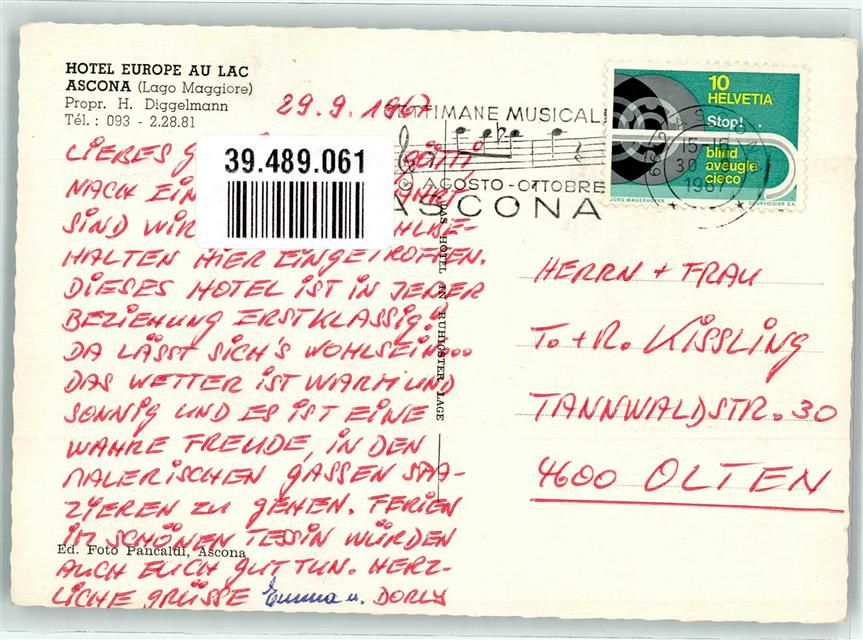 HOTEL EUROPE AU LAC
ASCONA (Lago Maggiore)
Propr. H. Diggelmann
Tél.: 093 - 2.28.81
29.9.1967
LIEBES
NACH EIN
SIND WIR
HALTEN HIER EINGETROFFEN.
DIESES HOTEL IST IN JEDER
BEZIEHUNG ERSTKLASSIG!
DA LÄSST SICH'S WOHLSEIN...
DAS WETTER IST WARM UND
SONNIG UND ES IST EINE
WAHRE FREUDE, IN DEN
MALERISCHEN GASSEN SPA-
ZIEREN ZU GEHEN. FERIEN
IM SCHÖNEN TESSIN WÜRDEN
AUCH EUCH GUT TUN. HERZ-
LICHE GRÜSSE Emma u. DORLY
Ed. Foto Pancaldi, Ascona
39.489.061
DAS HOTEL IN RUHIGSTER LAGE
SETTIMANE MUSICALI
AGOSTO - OTTOBRE
ASCONA
10
HELVETIA
Stop!
blind
aveugle
cieco
JÖRG MAUERHOFER
COURVOISIER S.A.
HERRN + FRAU
T. + R. KISSLING
TANNWALDSTR. 30
4600 OLTEN